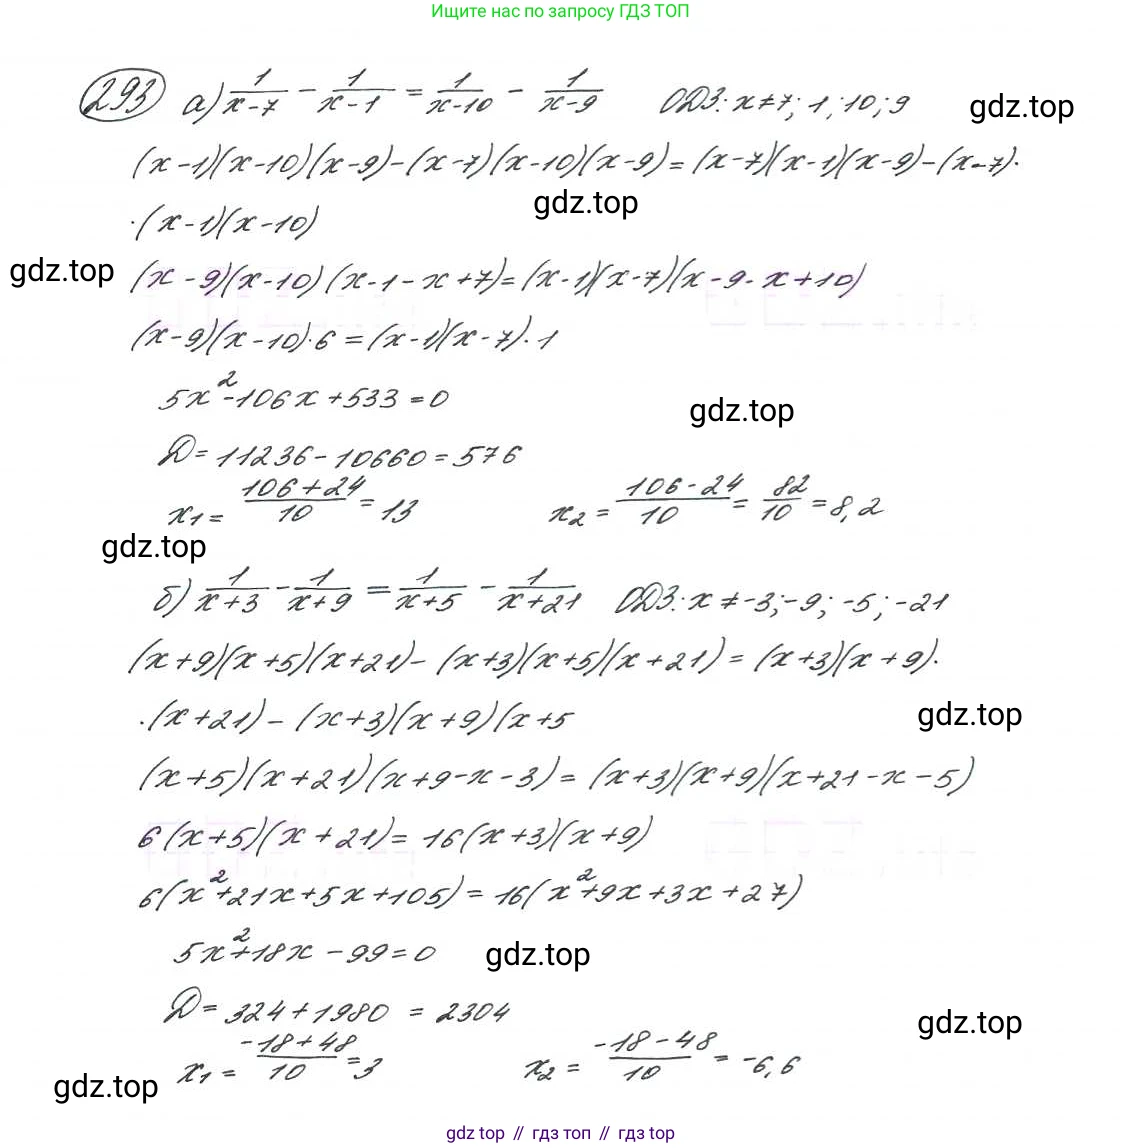 Ищите нас по запросу ГДЗ ТОП
293 а) 1/(x-7) - 1/(x-1) = 1/(x-10) - 1/(x-9) ОДЗ: x≠7; 1; 10; 9
gdz.top
(x-1)(x-10)(x-9)-(x-7)(x-10)(x-9)=(x-7)(x-1)(x-9)-(x-7)·
·(x-1)(x-10)
gdz.top
gdz.top
(x-9)(x-10)(x-1-x+7)=(x-1)(x-7)(x-9-x+10)
(x-9)(x-10)·6=(x-1)(x-7)·1
5x²-106x+533=0
gdz.top
Д=11236-10660=576
x₁= (106+24)/10 = 13 x₂ = (106-24)/10 = 82/10 = 8,2
gdz.top
б) 1/(x+3) - 1/(x+9) = 1/(x+5) - 1/(x+21) ОДЗ: x≠-3;-9; -5; -21
(x+9)(x+5)(x+21)-(x+3)(x+5)(x+21)=(x+3)(x+9)·
·(x+21)-(x+3)(x+9)(x+5
gdz.top
(x+5)(x+21)(x+9-x-3)=(x+3)(x+9)(x+21-x-5)
6(x+5)(x+21)=16(x+3)(x+9)
6(x²+21x+5x+105)=16(x²+9x+3x+27)
5x²+18x-99=0
gdz.top
Д=324+1980=2304
gdz.top
x₁= (-18+48)/10 =3 x₂= (-18-48)/10 = -6,6
gdz.top
gdz top // гдз топ // gdz top